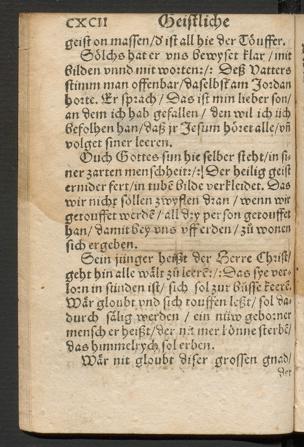 CXCII Geistliche
geist on massen/d ist all hie der Töuffer.
Sölchs hat er vns bewyset klar/mit
bilden vnnd mit worten:/: Deß Vatters
stimm man offenbar/daselbst am Jordan
horte. Er sprach/Das ist min lieber son/
an dem ich hab gefallen/den wil ich üch
befolhen han/daß jr Jesum höret alle/vn̄
volget siner leeren.
Ouch Gottes sun hie selber steht/in si-
ner zarten menschheit:/:Der heilig geist
ernider fert/in tubē bilde verkleidet. Das
wir nicht söllen zwyflen dran/wenn wir
getouffet werdē/all dry person getouffet
han/damit bey vns vff erden/zů wonen
sich ergeben.
Sein jünger heißt der Herre Christ/
geht hin alle wält zů leerē:/:Das sye ver-
lorn in sünden ist/sich sol zur bůsse keerē.
Wär gloubt vnd sich touffen leßt/sol da-
durch sälig werden/ein nüw geborner
mensch er heißt/der nit mer könne sterbē/
das himmelrych sol erben.
Wär nit gloubt diser grossen gnad/
der